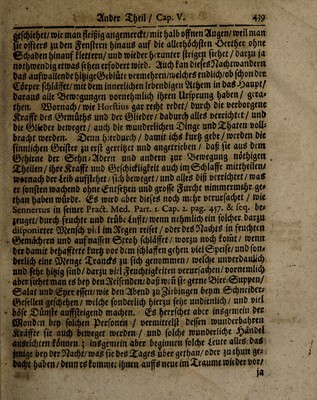 Ander Theil / Cap. V. 439
geschiehet / wie man fleißig angemerckt / mit halb offnen Augen / weil man
sie offters zu den Fenstern hinaus auf die allerhöchsten Oerther ohne
Schaden hinauf klettern / und wieder herunter steigen siehet / darzu ja
nothwendig etwas sehen erfodert wird. Auch kan dieses Nachtwandern
das aufwallende hitzige Geblüte vermehren / welches endlich / ob schon der
Cörper schläffet / mit dem innerlichen lebendigen Athem in das Haupt /
daraus alle Bewegungen vornehmlich ihren Ursprung haben / gera-
then. Wornach / wie Horstius gar recht redet / durch die verborgene
Krafft des Gemüths und der Glieder / dadurch alles verrichtet / und
die Glieder beweget / auch die wunderlichen Dinge und Thaten voll-
bracht werden. Denn hierdurch / damit ichs kurtz gebe / werden die
sinnlichen Geister zu erst gereitzet und angetrieben / daß sie aus dem
Gehirne der Sehn-Adern und andern zur Bewegung nöthigen
Theilen / ihre Krafft und Geschickligkeit auch im Schlaffe mittheilen /
wornach der Leib aufstehet / sich beweget / und alles diß verrichtet / was
er sonsten wachend ohne Entsetzen und grosse Furcht nimmermehr ge-
than haben würde. Es wird aber dieses noch mehr verursachet / wie
Sennertus in seiner Pract. Med. Part. 1. Cap. 2. pag. 457. & seq. be-
zeuget / durch feuchte und trübe Luffte / wenn nehmlich ein solcher darzu
disponirter Mensch viel im Regen reiset / oder des Nachts in feuchten
Gemächern und auf nassen Stroh schläffet / worzu noch kömt / wenn
der damit behafftete kurtz vor dem schlaffen gehen viel Speise / und son-
derlich eine Menge Trancks zu sich genommen / welche unverdaulich
und sehr hitzig sind / darzu viel Feuchtigkeiten verursachen / vornemlich
aber siehet man es bey den Reisenden / daß wenn sie gerne Bier-Suppen /
Salat und Eyer essen / wie den Abend zu Ziebingen beym Schneider-
Gesellen geschehen / welche sonderlich hierzu sehr undienlich / und viel
böse Dünste aufsteigend machen. Es herrschet aber insgemein der
Monden bey solchen Personen / vermittelst dessen wunderbahren
Kräffte sie auch beweget werden / und solche wunderliche Händel
anrichten können; insgemein aber beginnen solche Leute alles das
jenige bey der Nacht / was sie des Tages über gethan / oder zu thun ge-
dacht haben / denn es kommet ihnen auffs neue im Traume wieder vor /
ja